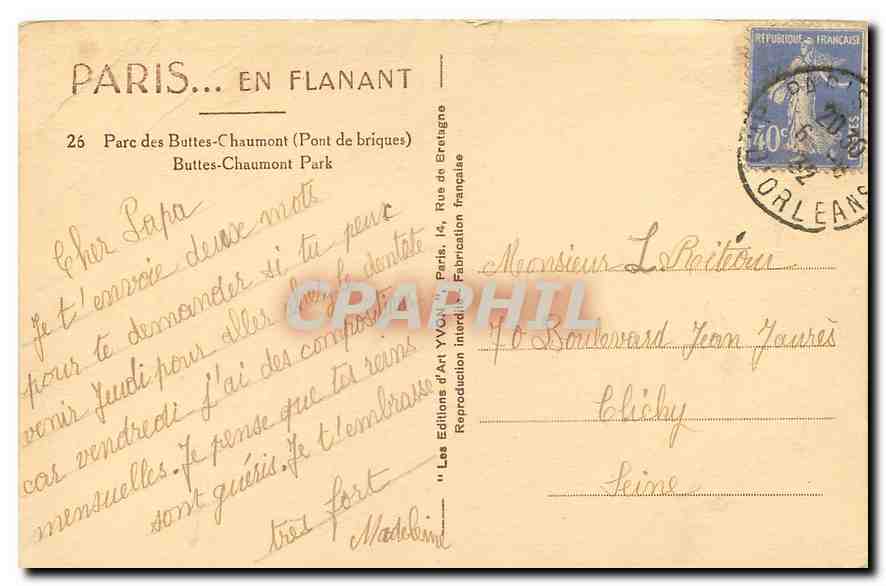 PARIS... EN FLANANT
26 Parc des Buttes-Chaumont (Pont de briques)
Buttes-Chaumont Park
Cher Papa
Je t'envoie deux mots
pour te demander si tu peux
venir Jeudi pour aller chez le dentiste
car vendredi j'ai des compositions
mensuelles. Je pense que tes reins
sont guéris. Je t'embrasse
très fort
Madeleine
"LES EDITIONS D'ART YVON", Paris, 14, Rue de Bretagne
Reproduction interdite. Fabrication française
REPUBLIQUE FRANÇAISE
40c POSTES
PARIS
20 30
6
32
ORLEANS
Monsieur L.
70 Boulevard Jean Jaurès
Clichy
Seine
CPAPHIL